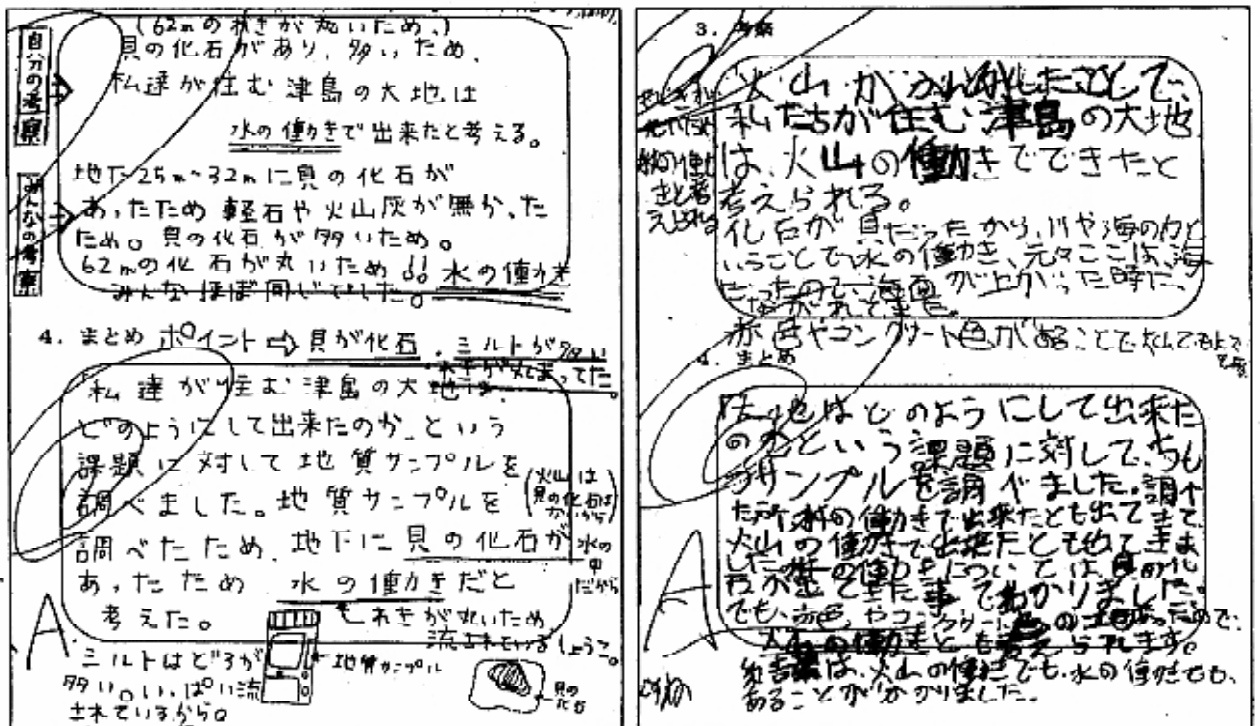 自分の考察
(62mのれきが丸いため、)
貝の化石があり、多いため、
私達が住む津島の大地は
水の働きで出来たと考える。
みんなの考察
地下25m~32mに貝の化石が
あったため軽石や火山灰が無かった
ため。貝の化石が多いため。
62mの化石が丸いため!! 水の働き
みんなほぼ同じでした。
4. まとめ ポイント⇨貝が化石、ミルトが多い
私達が住む津島の大地は、
どのようにして出来たのか、という
課題に対して地質サンプルを
調べました。地質サンプルを
(火山は貝の化石はないから)
調べたため、地下に貝の化石が
あったため 水の働きだと
水の中だから
考えた。
れきが丸いため
流されているしょうこ。
A
ミルトはどろが
多い。いっぱい流
されているから。
←地質サンプル
←貝の化石
3. 考察
火山がふん火したことで、
私たちが住む津島の大地
は、火山の働きでできたと
考えられる。
化石が貝だったから、川や海の力と
いうことで水の働き、元々ここは、海
だったので海面が上がった時に、
ながれてきた。
赤色やコンクリート色があることで
4. まとめ
土地はどのようにして出来た
のかという課題に対して、
サンプルを調べました。調べ
たら水の働きで出来たとも出てきて
火山の働きで出来たとも出てきま
した。水の働きについては貝の化
石が出てきた事でわかりました。
でも、赤色やコンクリート
火山の働きとも考えられます。
は、火山の働きでも、水の働きでも、
あることがわかりました。
A